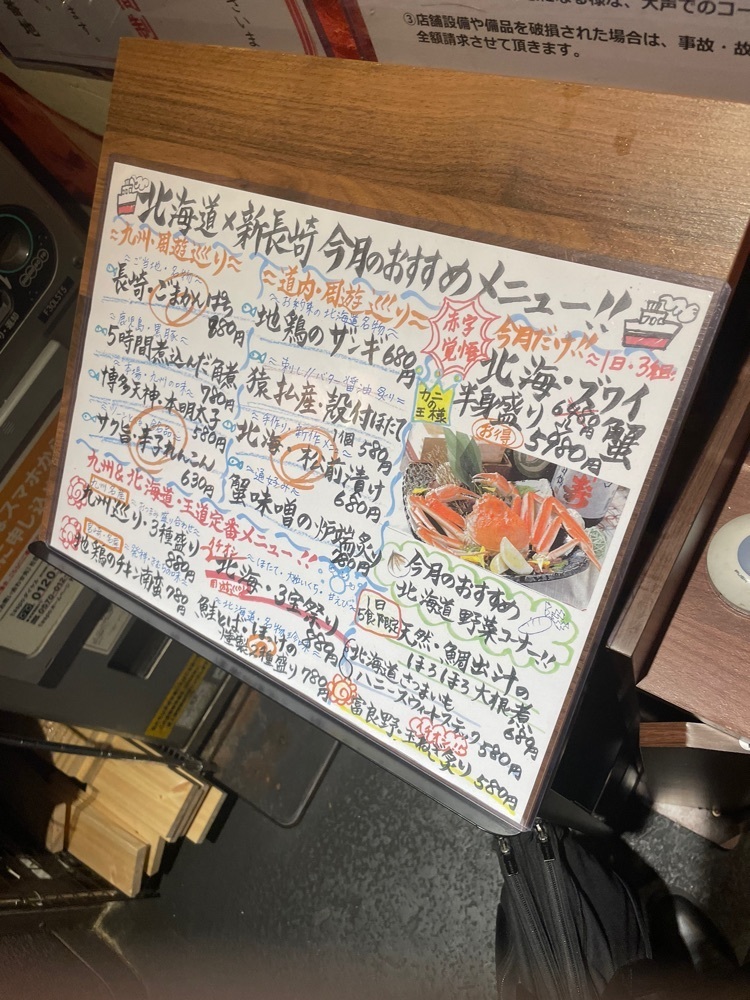 大声でのコー
③店舗設備や備品を破損された場合は、事故・故
全額請求させて頂きます。
北海道×新長崎 今月のおすすめメニュー!!
≈九州・周遊巡り≈
~ご当地・名物~
長崎・ごまかんぱち
880円
~鹿児島・黒豚~
5時間煮込んだ角煮
780円
博多天神・本明太子
580円
サク旨・辛子れんこん
630円
≈道内・周遊巡り≈
~お約束の北海道名物~
地鶏のザンギ 680円
猿払産・殻付ほたて
1個 580円
~手作り・新作〆~
北海・松前漬け
680円
蟹味噌の炉端炙り
赤字覚悟
今月だけ!!
~1日・3組!
カニの王様
北海・ズワイ蟹
半身盛り
お得
5980円
九州&北海道・王道定番メニュー!!
九州巡り・3種盛り
880円
地鶏のチキン南蛮 780円
イチオシ
北海・3宝祭り
880円
~北海道・名物珍味~
鮭とば・ほっけの
燻製2種盛り 780円
今月のおすすめ
北海道 野菜コーナー!!
1日限定
天然・鯛出汁の
ほろほろ大根煮
680円
北海道さつまいも
ハニースウィートスティック
580円
富良野・玉ねぎ炙り 580円
0120